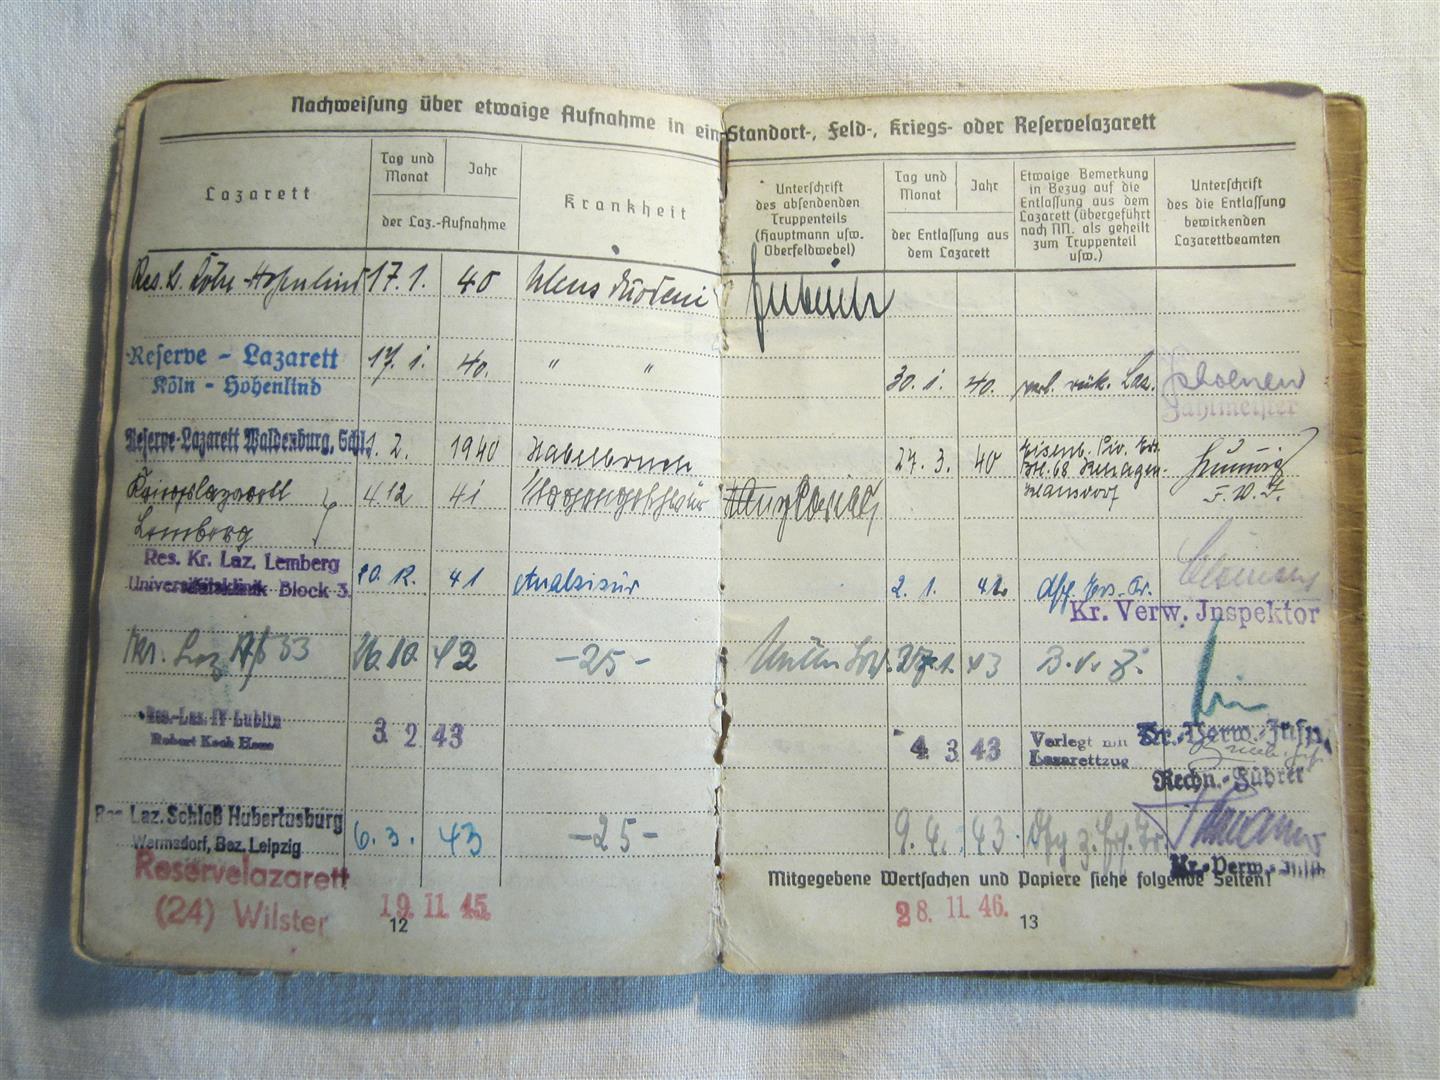 Nachweisung über etwaige Aufnahme in ein Standort-, Feld-, Kriegs- oder Reservelazarett
Lazarett
Tag und Monat
Jahr
der Laz.-Aufnahme
Krankheit
Unterschrift
des absendenden
Truppenteils
(Hauptmann usw.
Oberfeldwebel)
Tag und Monat
Jahr
der Entlassung aus
dem Lazarett
Etwaige Bemerkung
in Bezug auf die
Entlassung aus dem
Lazarett (übergeführt
nach NN. als geheilt
zum Truppenteil
usw.)
Unterschrift
des die Entlassung
bewirkenden
Lazarettbeamten
Res. L. Köln-Hohenlind 17.1. 40 Ulcus duodeni
Reserve - Lazarett 17. 1. 40. " "
Köln - Hohenlind
30. 1. 40. Laz.
Zahlmeister
Reserve-Lazarett Waldenburg, Schl. 1. 2. 1940
27. 3. 40
Kriegslazarett 4 12 41 Magengeschwür
Lemberg
Res. Kr. Laz. Lemberg
Universitätsklinik Block 3. 20. 12. 41
2. 1. 42
Kr. Verw. Jnspektor
Kr. Laz 26. 10. 42 -25-
27. 1. 43
Res.-Laz. IV Lublin
Robert Koch Haus
3. 2 43
4 3 43 Verlegt mit
Lazarettzug
Kr.-Verw.-Insp.
Rechn.-Führer
Res. Laz. Schloß Hubertusburg
Wermsdorf, Bez. Leipzig
6. 3. 43 -25-
9. 4. 43
Kr.-Verw.-Insp.
Mitgegebene Wertsachen und Papiere siehe folgende Seiten!
Reservelazarett
(24) Wilster
19. 11. 45.
28. 11. 46.
12
13